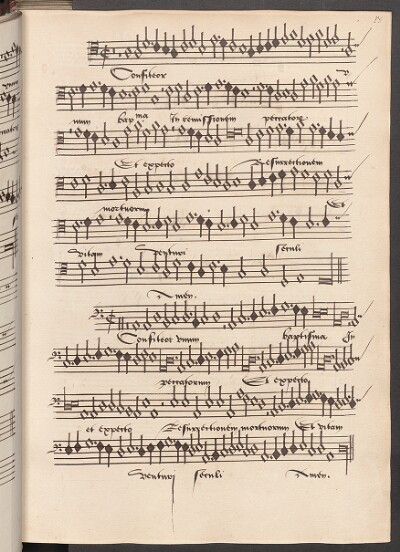 Confiteor v
num bapma In remissionem peccatorum
Et expecto Resurrectionem
mortuorum Et
vitam Venturi seculi
Amen.
Confiteor vnum baptisma In
peccatorum Et expecto
et expecto Resurrectionem mortuorum Et vitam
Venturi seculi Amen.